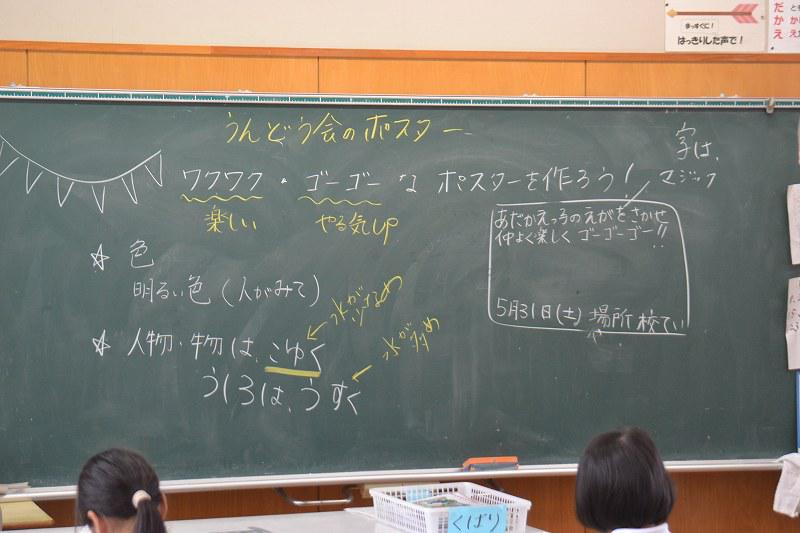 まっすぐに!
はっきりした声で!
だ
か
え
うんどう会のポスター
字は、
マジック
ワクワク・ゴーゴーな ポスターを作ろう!
楽しい
やる気UP
あだかえっ子のえがおをさかせ
仲よく楽しく ゴーゴーゴー!!
5月31日(土) 場所 校てい
☆ 色
明るい色(人がみて)
☆ 人物・物は、こゆく
水が少なめ
うしろは、うすく
水が多め
くばり